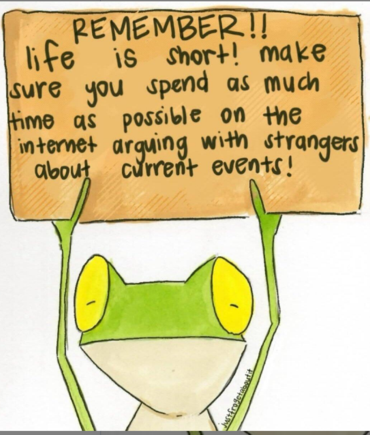 REMEMBER!!
life is short! make
sure you spend as much
time as possible on the
internet arguing with strangers
about current events!
justfrogetaboutit